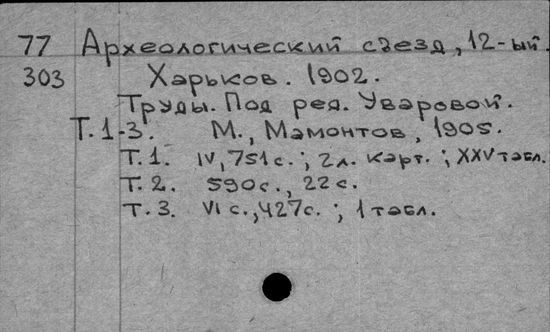 77 Археологический съезд, 12-ый.
303 Харьков. 1902.
Труды. Под ред. Уваровой.
Т. 1-3. М., Мамонтов, 1905.
Т. 1. IV, 751 с.; 2 л. карт.; XXV табл.
Т. 2. 590 с., 22 с.
Т. 3. VI с., 427 с.; 1 табл.